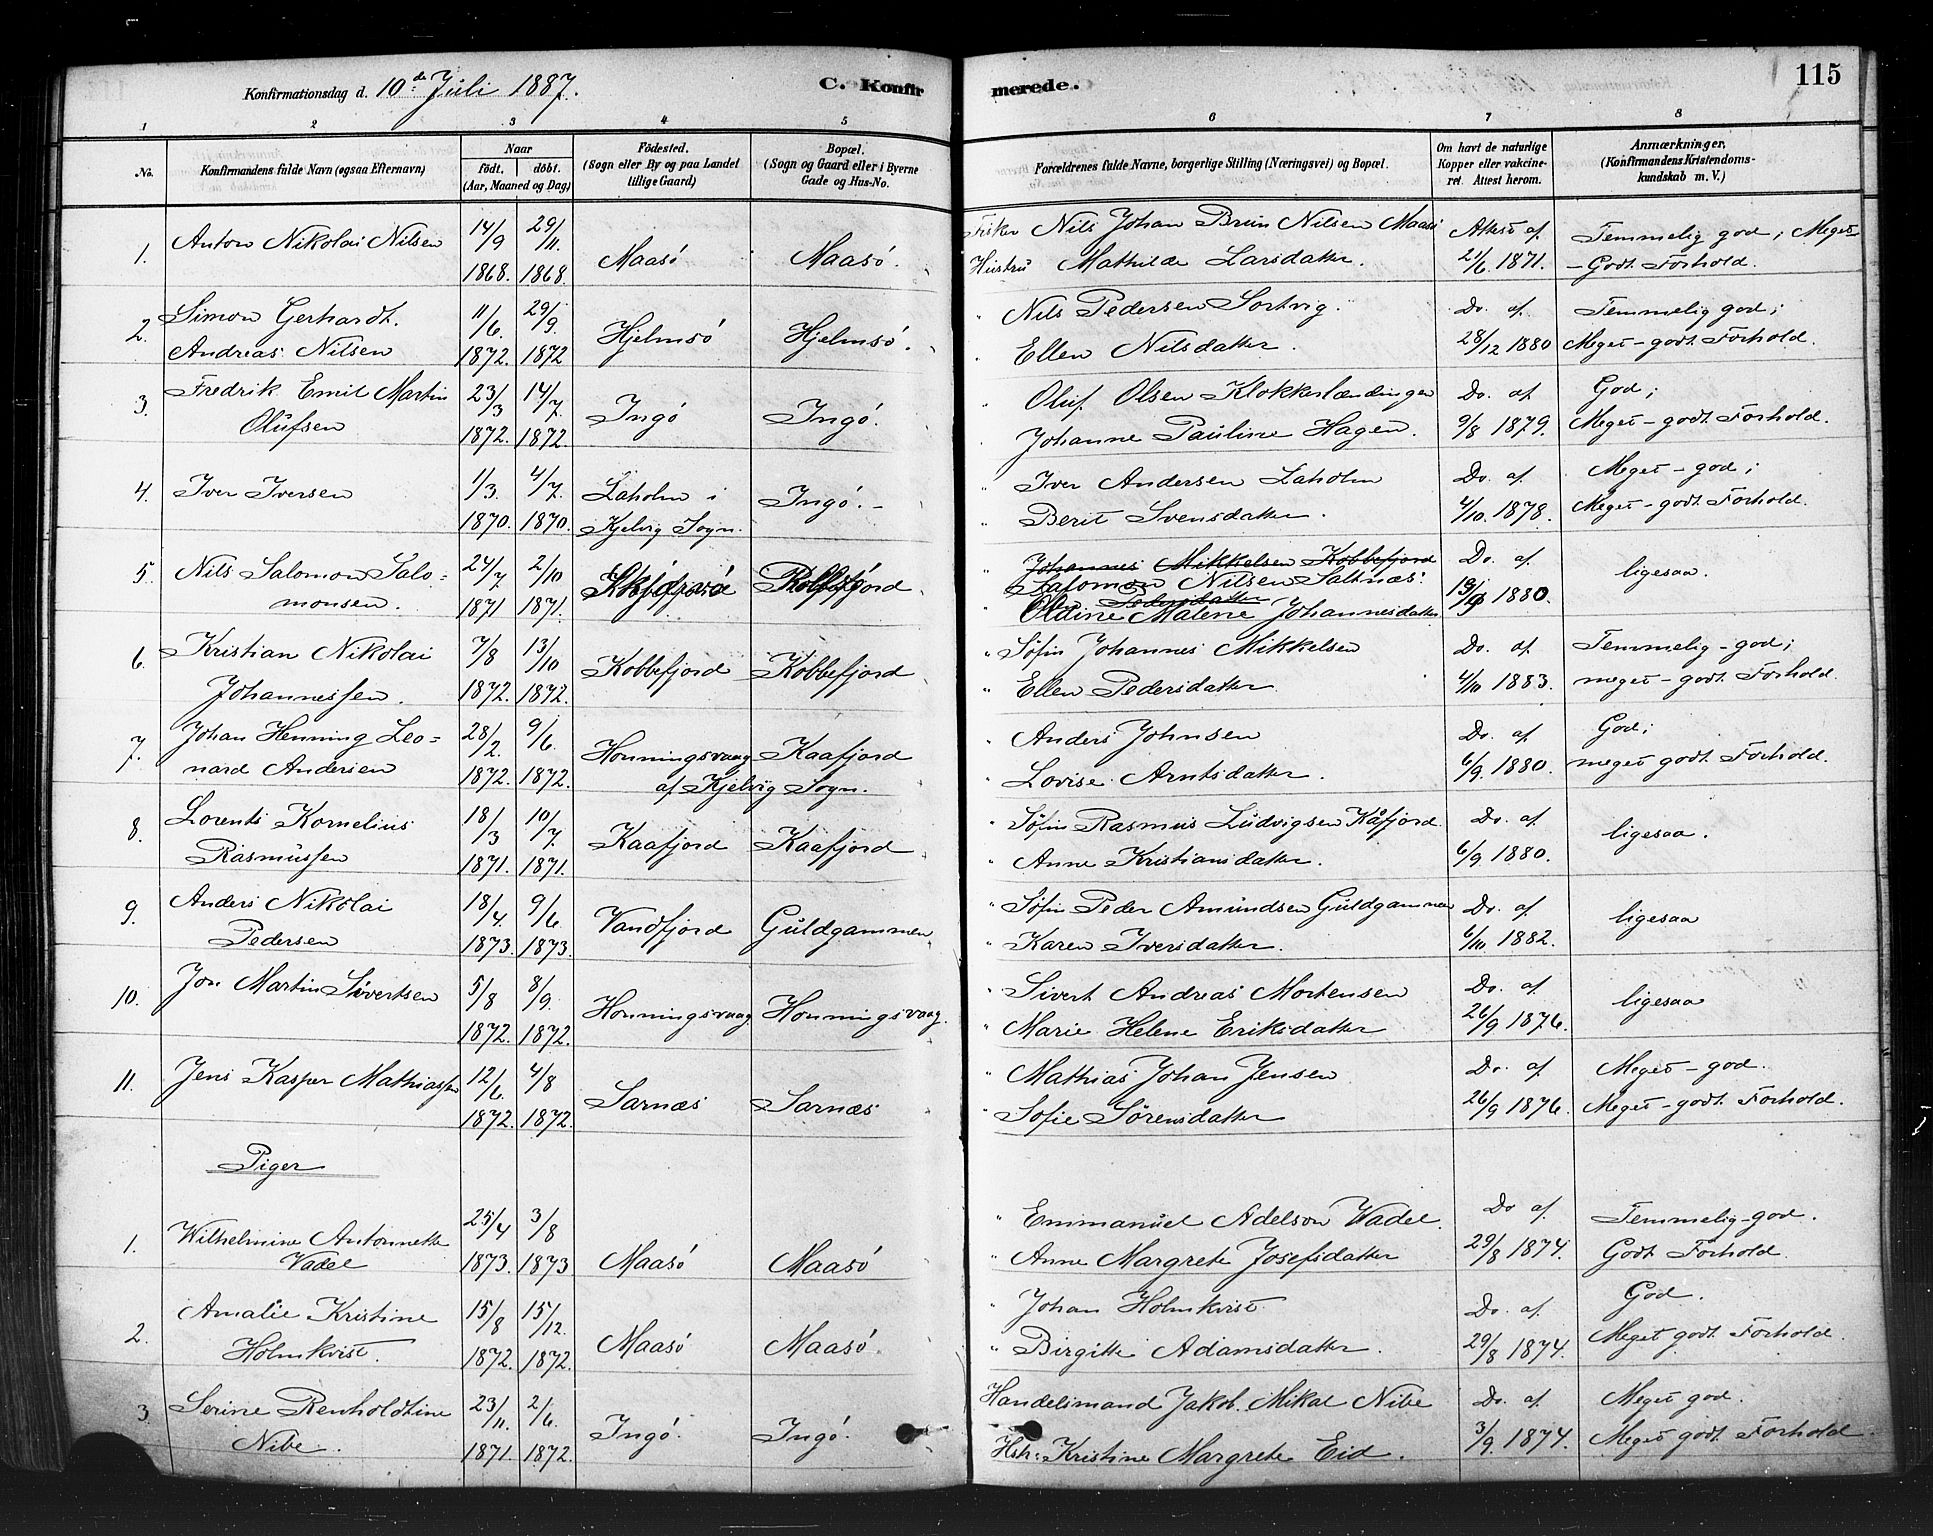 Konfirmationsdag d. 10de Juli 1887. C. Konfirmerede. 115
1 2 3 4 5 6 7 8
No. Konfirmandens fulde Navn (ogsaa Efternavn) Naar født, døbt. (Aar, Maaned og Dag) Fødested. (Sogn eller By og paa Landet tillige Gaard) Bopæl. (Sogn og Gaard eller i Byerne Gade og Hus-No. Forældrenes fulde Navne, borgerlige Stilling (Næringsvei) og Bopæl. Om havt de naturlige Kopper eller vakcineret. Attest herom. Anmærkninger, (Konfirmandens Kristendomskundskab m. V.)
1. Anton Nikolai Nilsen 14/9 1868. 29/11. 1868. Maasø Maasø. Fisker Nils Johan Brun Nilsen Maasø Attest af Temmelig god; Meget
Hustru Mathilde Larsdatter. 21/6. 1871. - Godt Forhold.
2. Simon Gerhardt. 11/6. 29/9. " Nils Pedersen Sortvig. Do. af. Temmelig god;
Andreas Nilsen 1872. 1872 Hjelmsø Hjelmsø. " Ellen Nilsdatter. 28/12 1880 Meget-godt Forhold.
3. Fredrik Emil Martin 23/3 14/7. Ingø Ingø. " Oluf Olsen Klokkerlændingen Do. af. God;
Olufsen 1872. 1872. Johanne Pauline Hagen. 9/8 1879. Meget-godt Forhold.
4. Iver Iversen 1/3. 4/7. Laholm i Ingø.- " Iver Andersen Laholm Do. af Meget-god;
1870. 1870. Kjelvig Sogn. " Berit Svensdatter. 4/10. 1878. Meget-godt Forhold.
5. Nils Salomon Salo- 24/7 2/10 " Johannes Mikkelsen Kobbefjord Do. af ligesaa.
Salomon Nilsen Saltnæs.
monsen. 1871 1871. " Pedersdatter 1880.
Oldine Malene Johannesdatter
6. Kristian Nikolai 7/8 13/10 Kobbefjord Kobbefjord " Søfin Johannes Mikkelsen Do. af. Temmelig-god;
Johannessen. 1872. 1872. " Ellen Pedersdatter. 4/10 1883. meget-godt Forhold.
7. Johan Henning Leo- 28/2. 9/6. Honningsvaag Kaafjord " Anders Johnsen Do. af. God;
nard Andersen 1872. 1872. af Kjelvig Sogn. " Lovise Arntsdatter. 6/9. 1880. meget godt Forhold.
8. Lorents Kornelius 18/3 10/7. Kaafjord Kaafjord " Søfin Rasmus Ludvigsen Kåfjord. Do. af ligesaa.
Rasmussen 1871. 1871. " Anne Kristiansdatter. 6/9. 1880.
9. Anders Nikolai 18/4. 9/6 Vandfjord Guldgammen " Søfin Peder Amundsen Guldgammen Do. af ligesaa
Pedersen 1873. 1873. " Karen Iversdatter. 6/10 1882.
10. Jon Martin Sivertsen 5/8 8/9. Honningsvaag Honningsvaag. " Sivert Andreas Mortensen Do. af ligesaa
1872. 1872. " Marie Helene Eriksdatter 26/9 1876.
11. Jens Kasper Mathiassen 12/6 4/8 Sarnæs Sarnæs " Mathias Johan Jensen Do. af Meget-god.
1872. 1872. " Sofie Sørensdatter 26/9 1876. Meget-godt Forhold.
Piger
1. Wilhelmine Antonnette 25/4 3/8 " Emmanuel Adelson Vadel. Do af. Temmelig-god.
Vadel 1873. 1873 Maasø Maasø " Anne Margrete Josefsdatter 29/8 1874. Godt Forhold.
2. Amalie Kristine 15/8 15/12. Maasø Maasø. " Johan Holmkvist. Do. af. God.
Holmkvist. 1872. 1872. " Birgitte Adamsdatter. 29/8 1874. Meget godt Forhold.
3. Serine Renholdtine 23/11. 2/6. Ingø. Ingø. Handelsmand Jakob Mikal Nibe Do. af. Meget god.
Nibe. 1871. 1872. Hstr: Kristine Margrete Eid. 3/9. 1874. Meget godt Forhold.